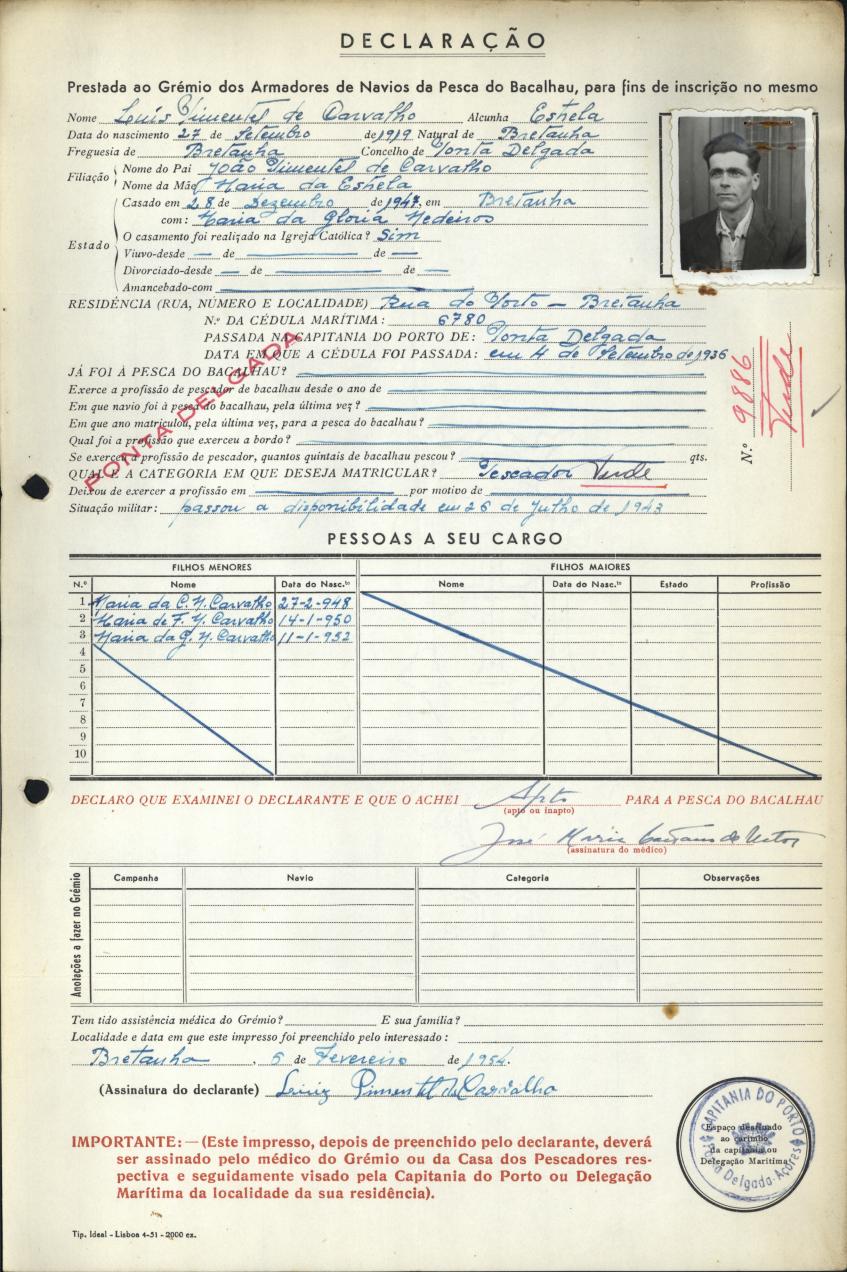 DECLARAÇÃO
Prestada ao Grémio dos Armadores de Navios da Pesca do Bacalhau, para fins de inscrição no mesmo
Nome Luís Pimentel de Carvalho Alcunha Estrela
Data do nascimento 27 de Setembro de 1919 Natural de Bretanha
Freguesia de Bretanha Concelho de Ponta Delgada
Filiação Nome do Pai João Pimentel de Carvalho
Nome da Mãe Maria da Estrela
Casado em 28 de Dezembro de 1947, em Bretanha
com: Maria da Gloria Medeiros
Estado O casamento foi realizado na Igreja Católica? Sim
Viuvo-desde — de — de —
Divorciado-desde — de — de —
Amancebado-com
RESIDÊNCIA (RUA, NÚMERO E LOCALIDADE) Rua do Porto — Bretanha
N.º DA CÉDULA MARÍTIMA: 6780
PASSADA NA CAPITANIA DO PORTO DE: Ponta Delgada
DATA EM QUE A CÉDULA FOI PASSADA: em 4 de Setembro de 1936
JÁ FOI À PESCA DO BACALHAU?
Exerce a profissão de pescador de bacalhau desde o ano de
Em que navio foi à pesca do bacalhau, pela última vez?
Em que ano matriculou, pela última vez, para a pesca do bacalhau?
Qual foi a profissão que exerceu a bordo?
Se exerceu a profissão de pescador, quantos quintais de bacalhau pescou? qts.
QUAL É A CATEGORIA EM QUE DESEJA MATRICULAR? Pescador Verde
Deixou de exercer a profissão em por motivo de
Situação militar: passou a disponibilidade em 26 de Julho de 1943
PONTA DELGADA
N.º 9886
Verde
PESSOAS A SEU CARGO
FILHOS MENORES FILHOS MAIORES
N.º Nome Data do Nasc.to Nome Data do Nasc.to Estado Profissão
1 Maria da C. M. Carvalho 27-2-948
2 Maria de F. M. Carvalho 14-1-950
3 Maria da G. M. Carvalho 11-1-952
4
5
6
7
8
9
10
DECLARO QUE EXAMINEI O DECLARANTE E QUE O ACHEI Apto PARA A PESCA DO BACALHAU
(apto ou inapto)
José Maria Caetano de
(assinatura do médico)
Anotações a fazer no Grémio
Campanha Navio Categoria Observações
Tem tido assistência médica do Grémio? E sua família?
Localidade e data em que este impresso foi preenchido pelo interessado:
Bretanha, 5 de Fevereiro de 1954.
(Assinatura do declarante) Luiz Pimentel de Carvalho
CAPITANIA DO PORTO
Espaço destinado
ao carimbo
da capitania ou
Delegação Marítima
Ponta Delgada-Açores
IMPORTANTE: — (Este impresso, depois de preenchido pelo declarante, deverá
ser assinado pelo médico do Grémio ou da Casa dos Pescadores res-
pectiva e seguidamente visado pela Capitania do Porto ou Delegação
Marítima da localidade da sua residência).
Tip. Ideal - Lisboa 4-51 - 2000 ex.